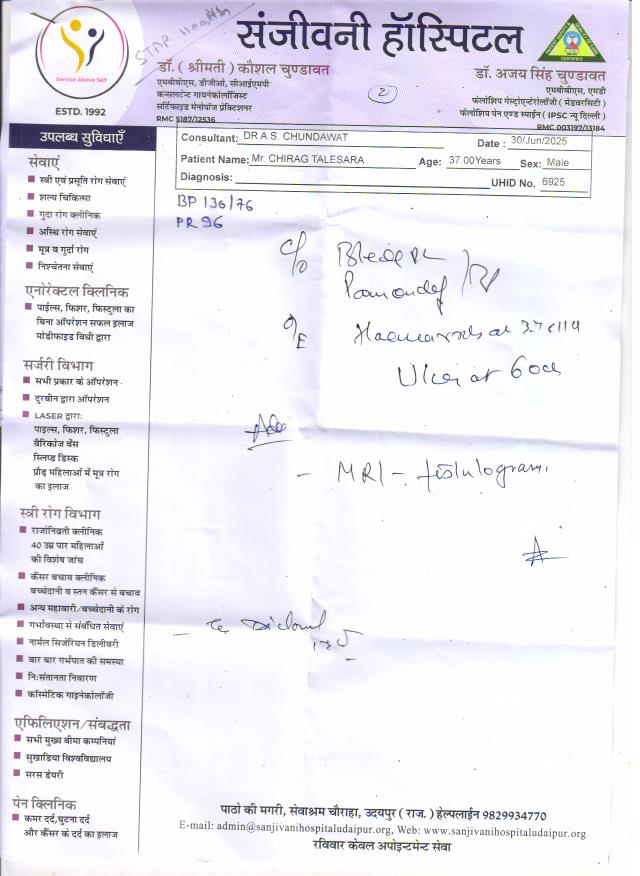 STAR Health
संजीवनी हॉस्पिटल
Service Above Self
ESTD. 1992
डॉ. (श्रीमती) कौशल चुण्डावत
एमबीबीएस, डीजीओ, सीआईएमपी
कन्सलटेन्ट गायनेकोलॉजिस्ट
सर्टिफाइड मेनोपॉज प्रेक्टिशनर
RMC 5187/12536
2
CERTIFIED
डॉ. अजय सिंह चुण्डावत
एमबीबीएस, एमडी
फेलोशिप गेस्ट्रोएन्टेरोलॉजी (मेडवरसिटी)
फेलोशिप पेन एण्ड स्पाईन (IPSC न्यू दिल्ली)
RMC 003197/13184
Consultant: DR.A.S. CHUNDAWAT Date : 30/Jun/2025
Patient Name: Mr. CHIRAG TALESARA Age: 37.00Years Sex: Male
Diagnosis: UHID No. 6925
BP 136/76
PR 96
C/o
O/E
Ulcer at 6 o
Adv
- MRI - fistulogram
उपलब्ध सुविधाएँ
सेवाएं
स्त्री एवं प्रसूति रोग सेवाएं
शल्य चिकित्सा
गुदा रोग क्लीनिक
अस्थि रोग सेवाएं
मूत्र व गुर्दा रोग
निश्चेतना सेवाएं
एनोरेक्टल क्लिनिक
पाईल्स, फिशर, फिस्टुला का
बिना ऑपरेशन सफल इलाज
मोडीफाइड विधी द्वारा
सर्जरी विभाग
सभी प्रकार के ऑपरेशन
दुरबीन द्वारा ऑपरेशन
LASER द्वारा:
पाइल्स, फिशर, फिस्टुला
वैरिकोज वेंस
स्लिप्ड डिस्क
प्रौढ़ महिलाओं में मूत्र रोग
का इलाज
स्त्री रोग विभाग
राजोनिव्रती क्लीनिक
40 उम्र पार महिलाओं
की विशेष जांच
कैंसर बचाव क्लीनिक
बच्चेदानी व स्तन कैंसर से बचाव
अन्य महावारी/बच्चेदानी के रोग
गर्भावस्था से संबंधित सेवाएं
नार्मल सिजेरियन डिलीवरी
बार बार गर्भपात की समस्या
नि:संतानता निवारण
कॉस्मेटिक गाइनेकोलॉजी
एफिलिएशन/संबद्धता
सभी मुख्य बीमा कम्पनियां
सुखाडिया विश्वविद्यालय
सरस डेयरी
पेन क्लिनिक
कमर दर्द,घुटना दर्द
और कैंसर के दर्द का इलाज
पाठो की मगरी, सेवाश्रम चौराहा, उदयपुर ( राज. ) हेल्पलाईन 9829934770
E-mail: admin@sanjivanihospitaludaipur.org, Web: www.sanjivanihospitaludaipur.org
रविवार केवल अपोइन्टमेन्ट सेवा